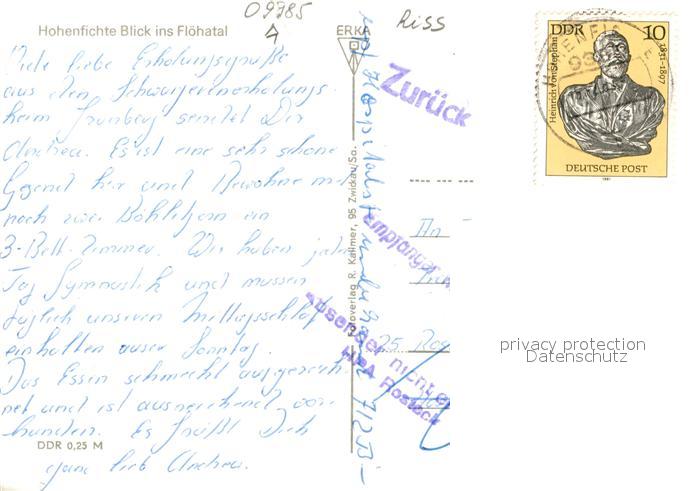 09785
Riss
Hohenfichte Blick ins Flöhatal
ERKA
Viele liebe Erholungsgrüße
aus dem Schwangerenerholungs-
heim Grünberg sendet Dir
Andrea. Es ist eine sehr schöne
Gegend hier und bewohne mit
noch zwei
3-Bett-Zimmer. Wir haben jeden
Tag Gymnastik und müssen
täglich unseren Mittagsschlaf
einhalten außer Sonntag.
Das Essen schmeckt ausgezeich-
net und ist ausreichend vor-
handen. Es grüßt Dich
ganz lieb Andrea.
DDR 0,25 M
Fotoverlag R. Kallmer, 95 Zwickau/Sa.
Zurück
Empfänger
Absender nicht
HPA Rostock
An
25 Ros
DDR 10
Heinrich von Stephan
1831-1897
DEUTSCHE POST
1981
privacy protection
Datenschutz